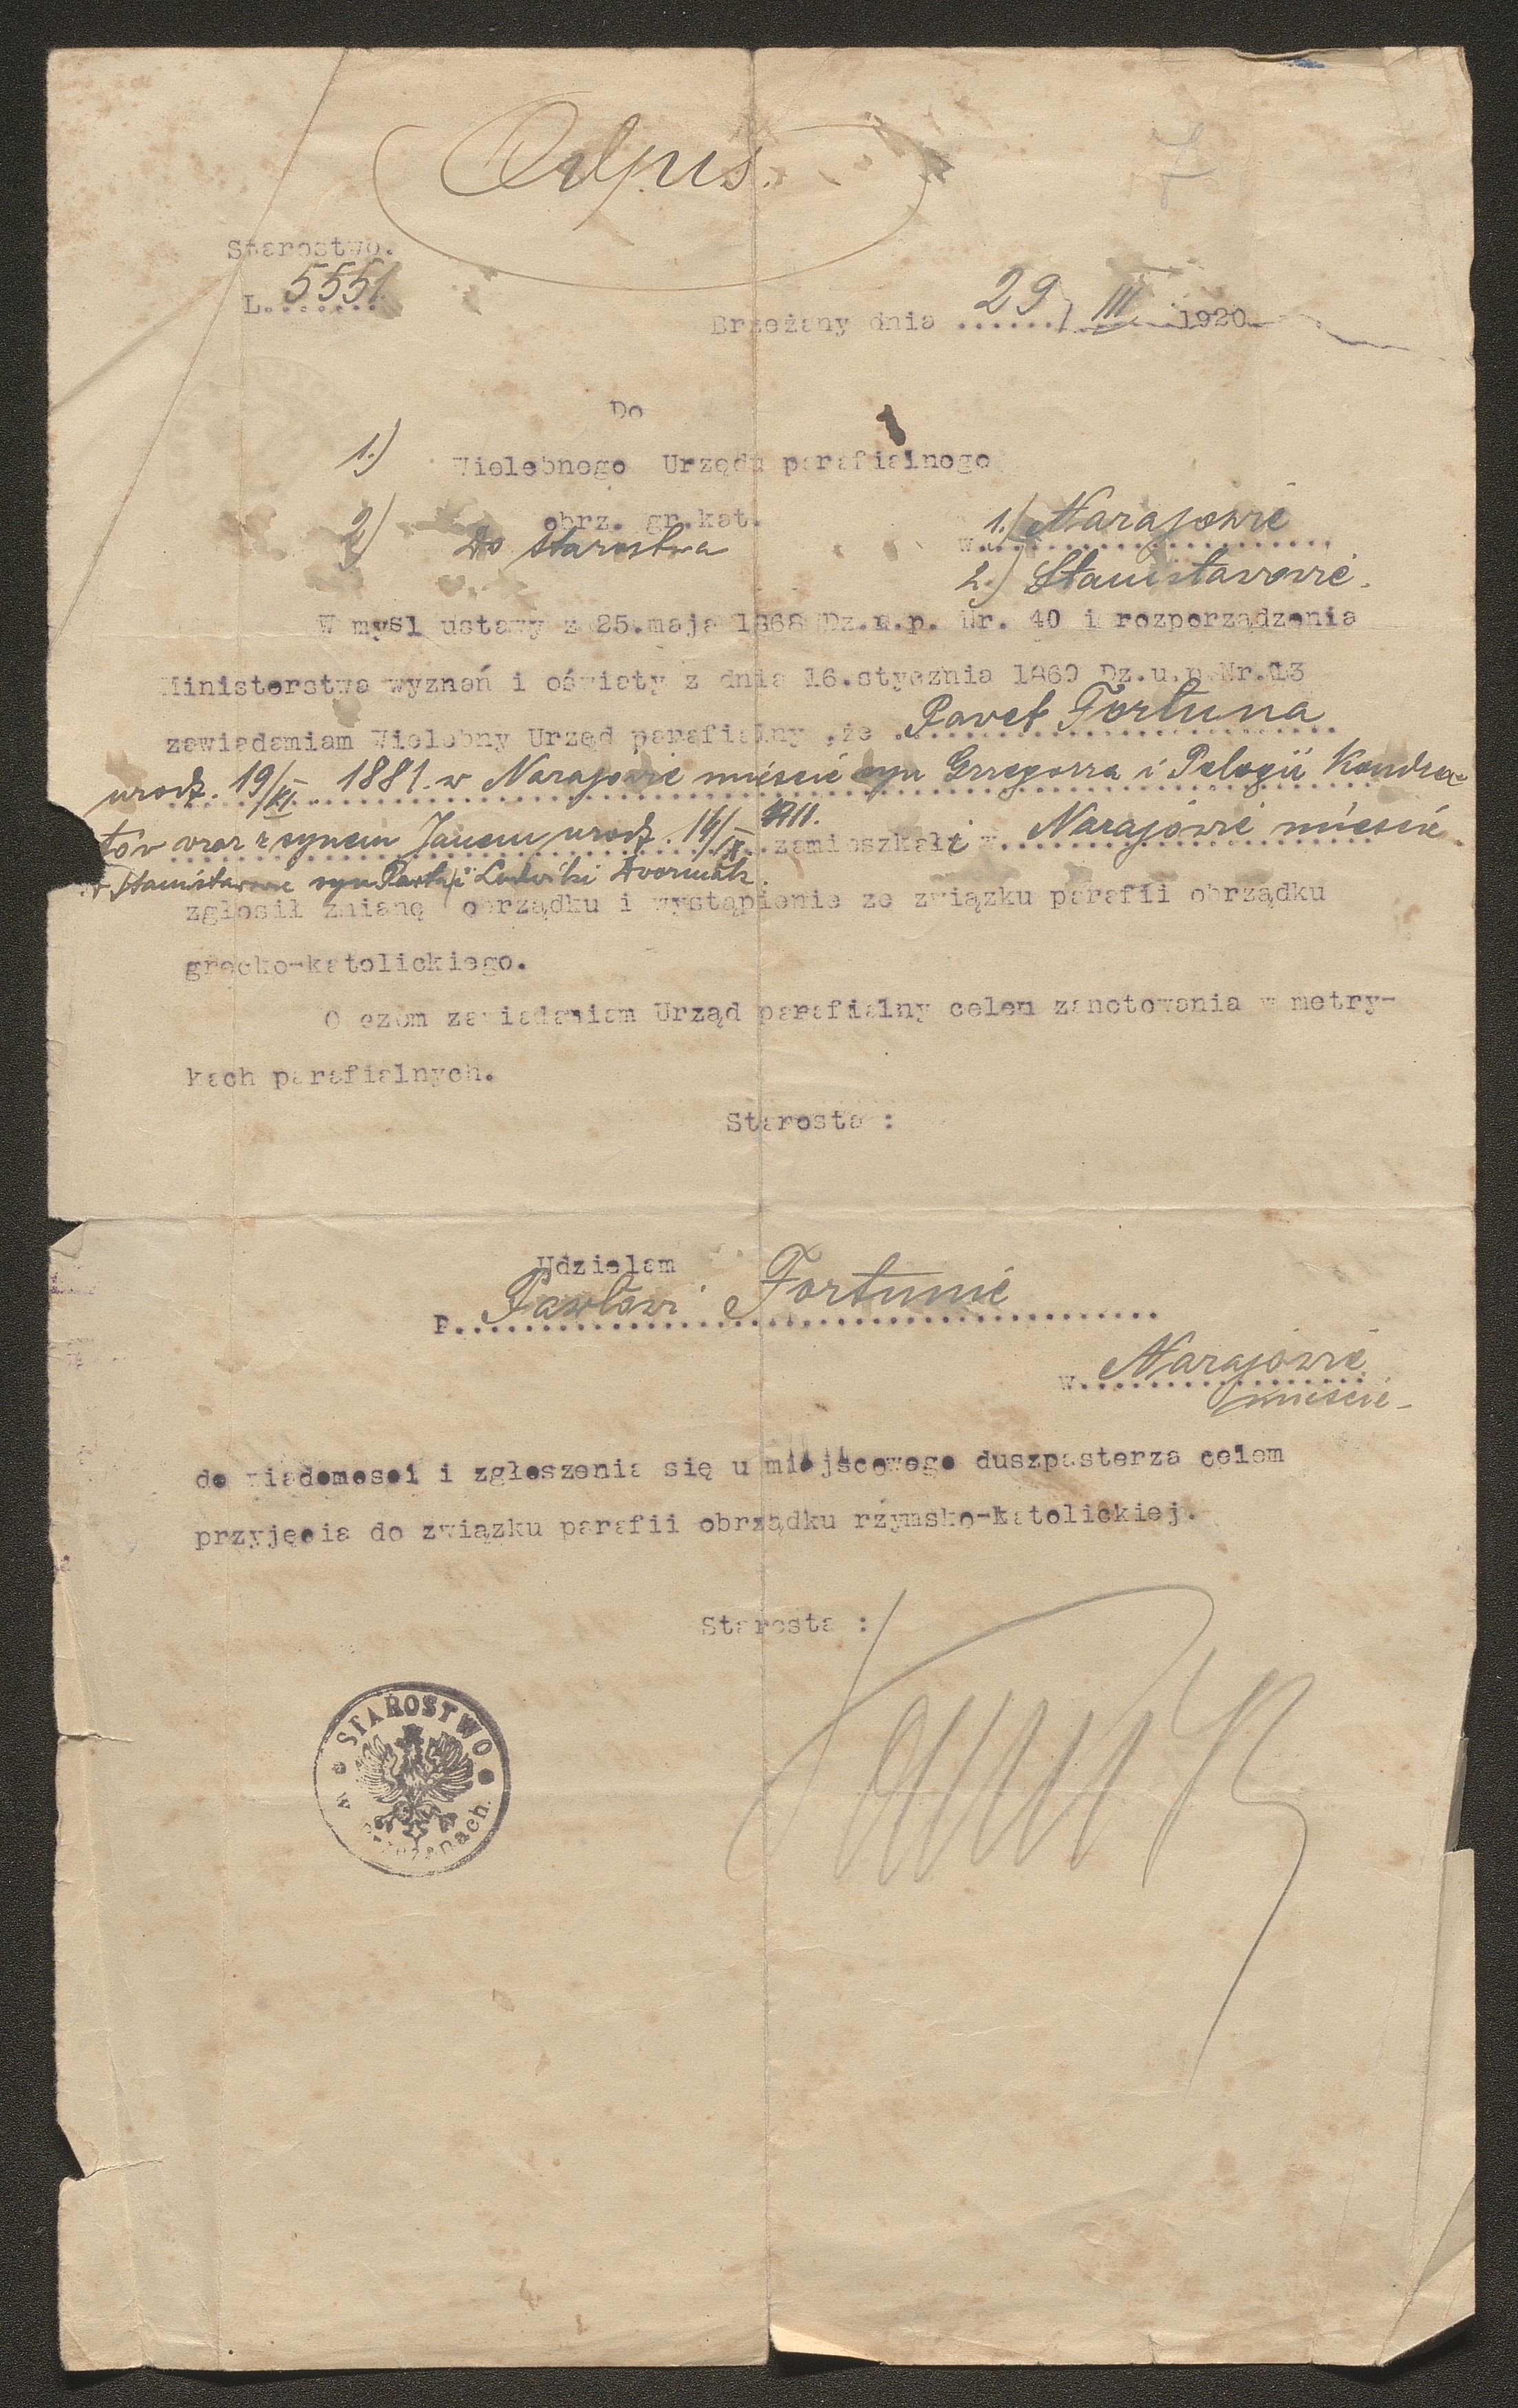 Odpis.
7
Starostwo.
L. 5551.
Brzeżany dnia 29/III 1920
Do
1.) Wielebnego Urzędu parafialnego
obrz. gr.kat.
2) Do Starostwa
w 1.) Narajowie
2.) Stanisławowie.
W mysl ustawy z 25.maja 1868 Dz.u.p. Nr. 40 i rozporządzenia
Ministerstwa wyznań i oświaty z dnia 16.stycznia 1869 Dz.u.p.Nr.13
zawiadamiam Wielebny Urząd parafialny ,że Paweł Fortuna
urodz. 19/XI 1881. w Narajowie mieście syn Grzegorza i Pelagii Kondra
tów wraz z synem Janem urodz. 14/IX 1911. zamieszkali w Narajowie mieście
w Stanisławowie syn Pawła i Ludwiki Dwornik.
zgłosił zmianę obrządku i wystąpienie ze związku parafii obrządku
grecko-katolickiego.
O czem zawiadamiam Urząd parafialny celem zanotowania w metry-
kach parafialnych.
Starosta :
Udzielam
P. Pawłowi Fortunie
w. Narajowie
mieście
do wiadomosci i zgłoszenia się u miejscowego duszpasterza celem
przyjęcia do związku parafii obrządku rzymsko-katolickiej.
Starosta :
STAROSTWO
w Brzeżanach.